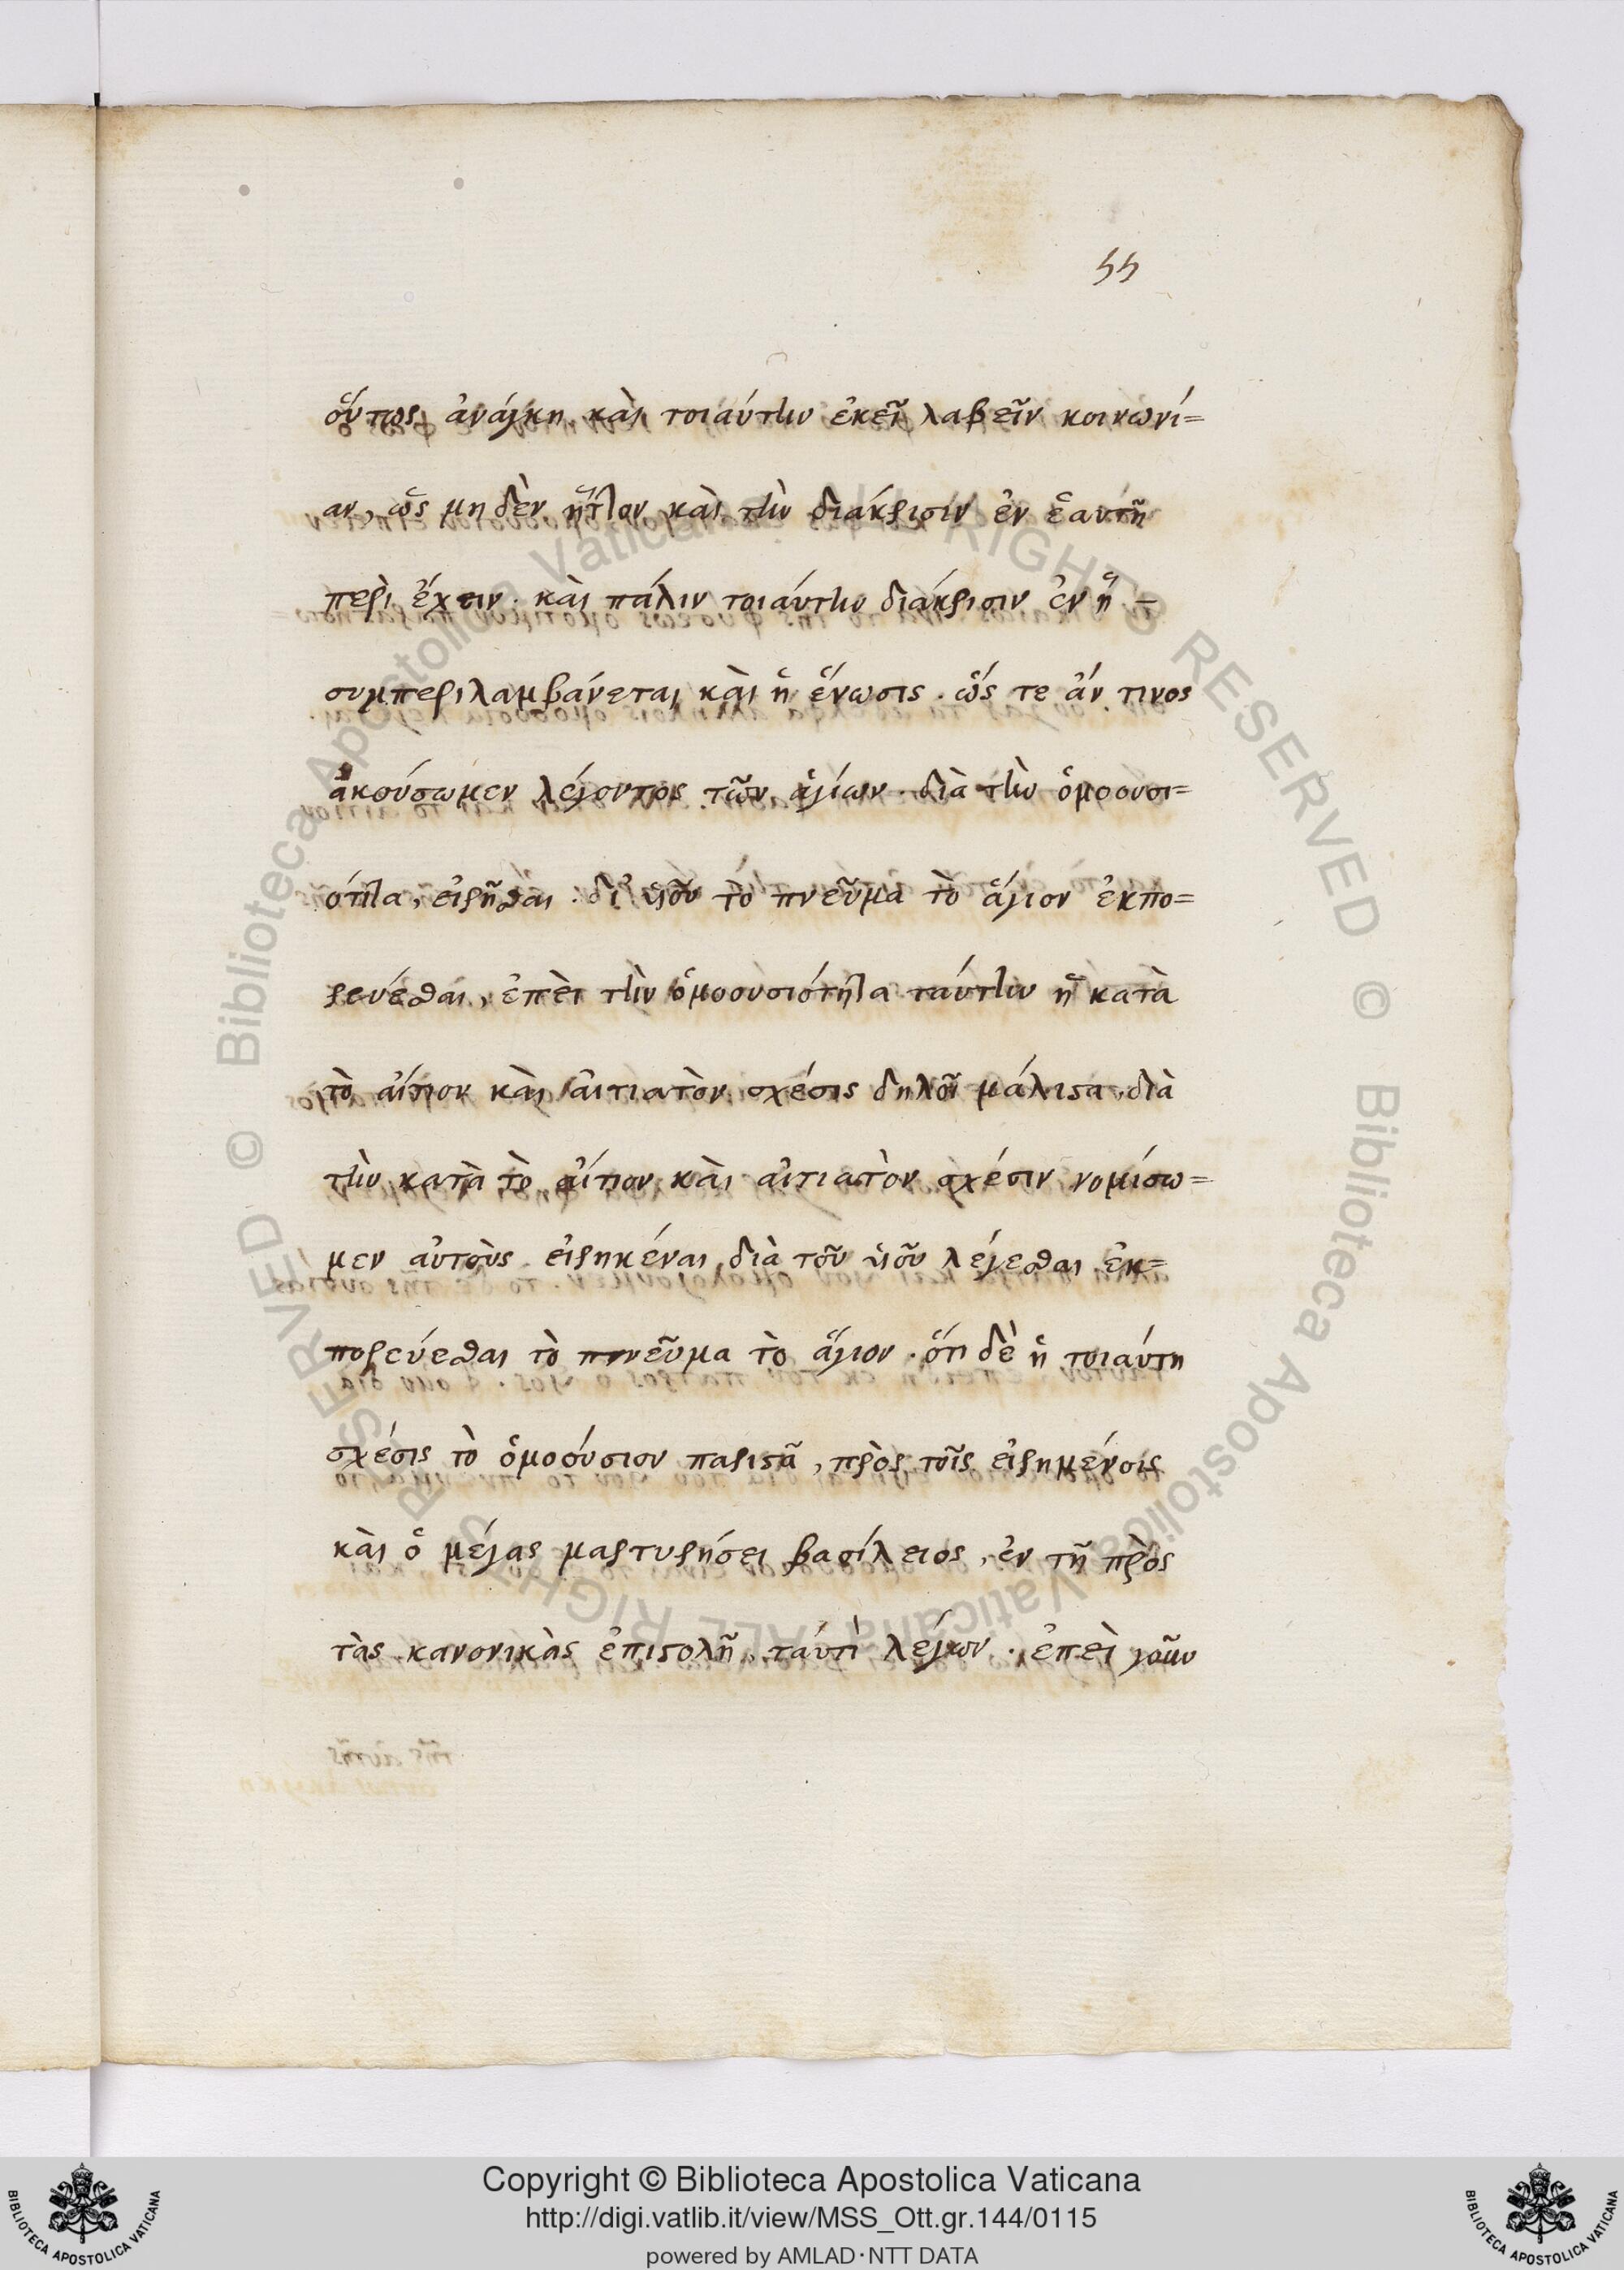 55
οὕτως ἀνάγκη καὶ τοιαύτην ἐκεῖ λαβεῖν κοινωνί=
αν, ὡς μηδὲν ἧττον καὶ τὴν διάκρισιν ἐν ἑαυτῇ
περιέχειν. καὶ πάλιν τοιαύτην διάκρισιν ἐν ᾗ –
συμπεριλαμβάνεται καὶ ἡ ἕνωσις. ὥς τε ἄν τινος
ἀκούσωμεν λέγοντος τῶν ἁγίων. διὰ τὴν ὁμοουσι=
ότητα, εἰρῆσθαι. δι' υἱοῦ τὸ πνεῦμα τὸ ἅγιον ἐκπο=
ρεύεσθαι, ἐπεὶ τὴν ὁμοουσιότητα ταύτην ἡ κατὰ
τὸ αἴτιον καὶ αἰτιατὸν σχέσις δηλοῖ μάλιστα, διὰ
τὴν κατὰ τὸ αἴτιον καὶ αἰτιατὸν σχέσιν νομίσω=
μεν αὐτοὺς εἰρηκέναι διὰ τοῦ υἱοῦ λέγεσθαι ἐκ=
πορεύεσθαι τὸ πνεῦμα τὸ ἅγιον. ὅτι δὲ ἡ τοιαύτη
σχέσις τὸ ὁμοούσιον παριστᾷ, πρὸς τοῖς εἰρημένοις
καὶ ὁ μέγας μαρτυρήσει βασίλειος, ἐν τῇ πρὸς
τὰς κανονικὰς ἐπιστολῇ, ταυτὶ λέγων. ἐπεὶ γοῦν
© Biblioteca Apostolica Vaticana ALL RIGHTS RESERVED © Biblioteca Apostolica Vaticana ALL RIGHTS RESERVED
Copyright © Biblioteca Apostolica Vaticana
http://digi.vatlib.it/view/MSS_Ott.gr.144/0115
powered by AMLAD·NTT DATA
BIBLIOTECA APOSTOLICA VATICANA
BIBLIOTECA APOSTOLICA VATICANA